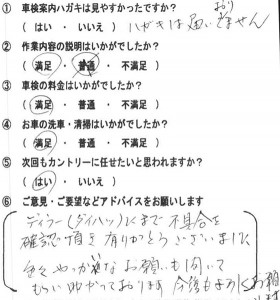 ① 車検案内ハガキは見やすかったですか？
( はい ・ いいえ ) ハガキは届いておりません
② 作業内容の説明はいかがでしたか？
( 満足 ・ 普通 ・ 不満足 )
③ 車検の料金はいかがでしたか？
( 満足 ・ 普通 ・ 不満足 )
④ お車の洗車・清掃はいかがでしたか？
( 満足 ・ 普通 ・ 不満足 )
⑤ 次回もカントリーに任せたいと思われますか？
( はい ・ いいえ )
⑥ ご意見・ご要望などアドバイスをお願いします
ディラー(ダイハツ)にまで不具合を
確認頂き有りがとうございました
色々やっかいなお願いも聞いて
もらい助かっております 今後もよろしくお願